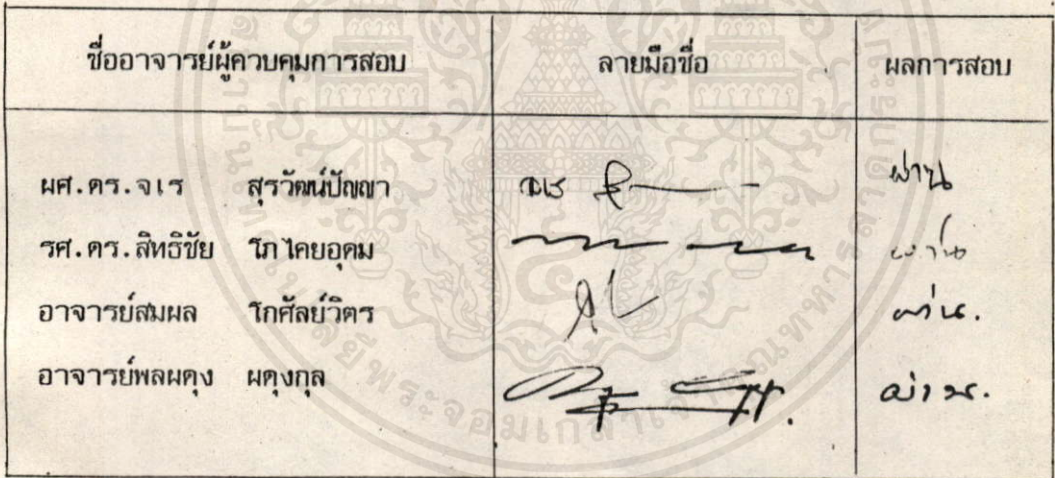 ชื่ออาจารย์ผู้ควบคุมการสอบ ลายมือชื่อ ผลการสอบ
ผศ.ดร.จเร สุรวัฒน์ปัญญา จเร ผ่าน
รศ.ดร.สิทธิชัย โภไคยอุดม ผ่าน
อาจารย์สมผล โกศัลย์วิตร ผ่าน.
อาจารย์พลผดุง ผดุงกุล ผ่าน.